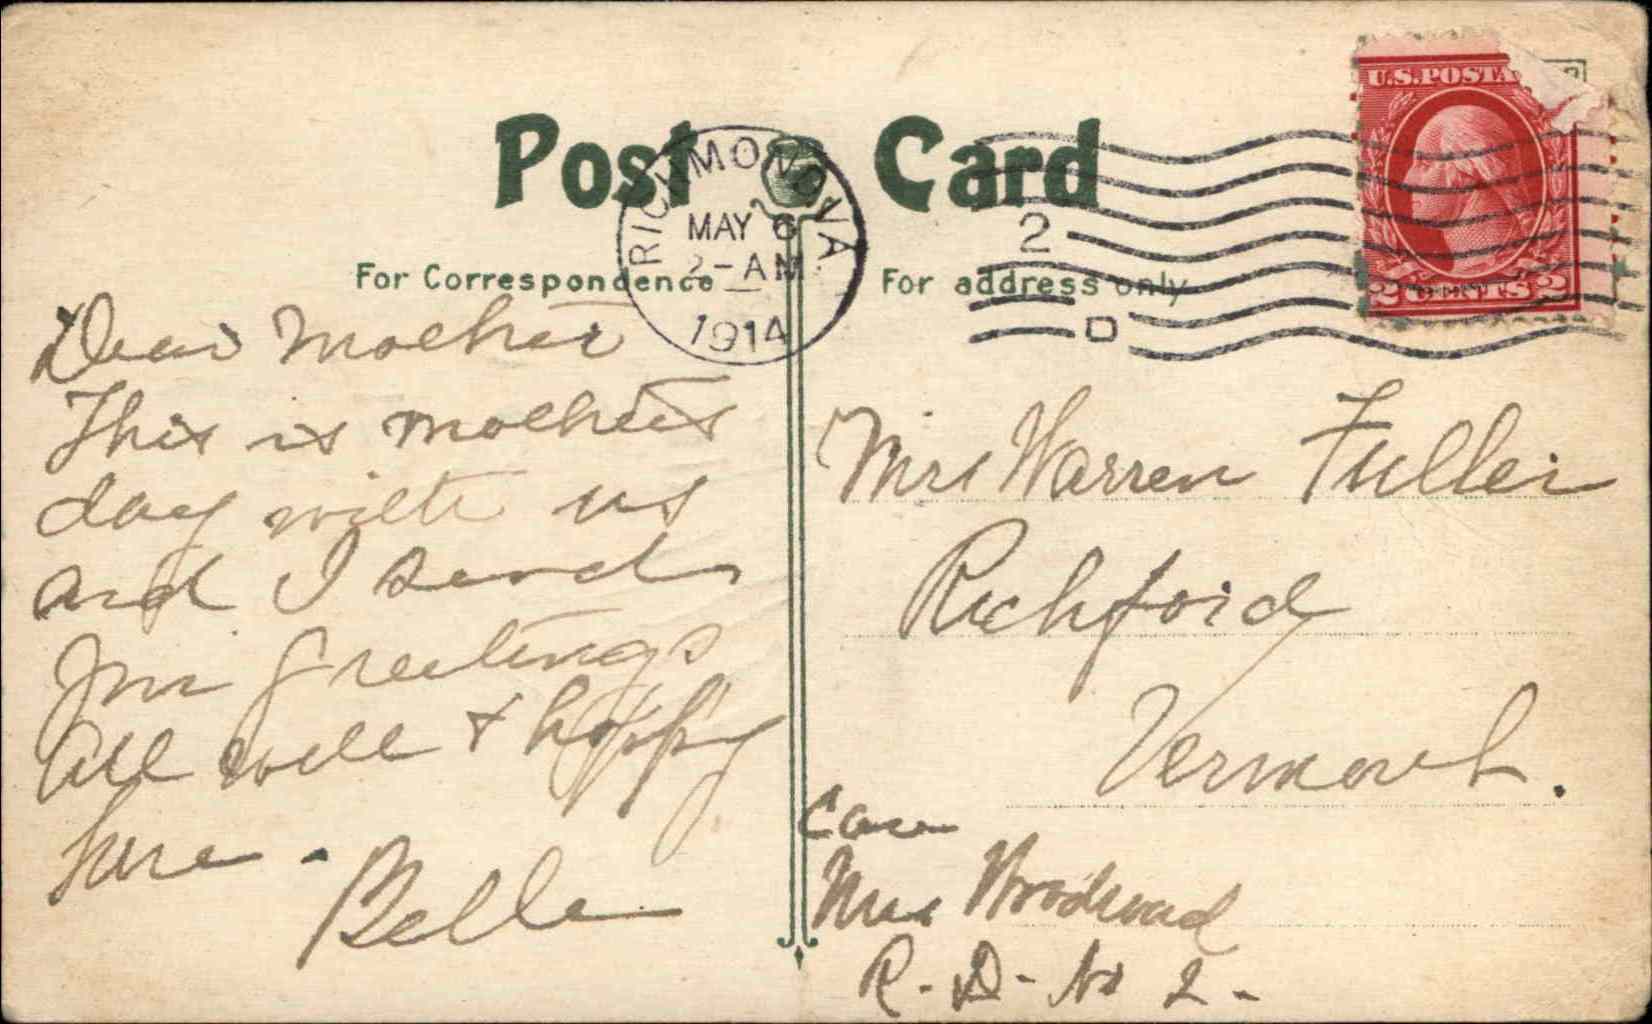 Post Card
RICHMOND, VA
MAY 6
2-AM
1914
2
D
U.S. POSTA
2 CENTS 2
For Correspondence
For address only
Dear Mother
This is mothers
day with us
and I send
you greetings
All well & happy
here.
Belle
Mrs Warren Fuller
Richford
Vermont.
Care
Mrs Woodward
R. D. No 2.